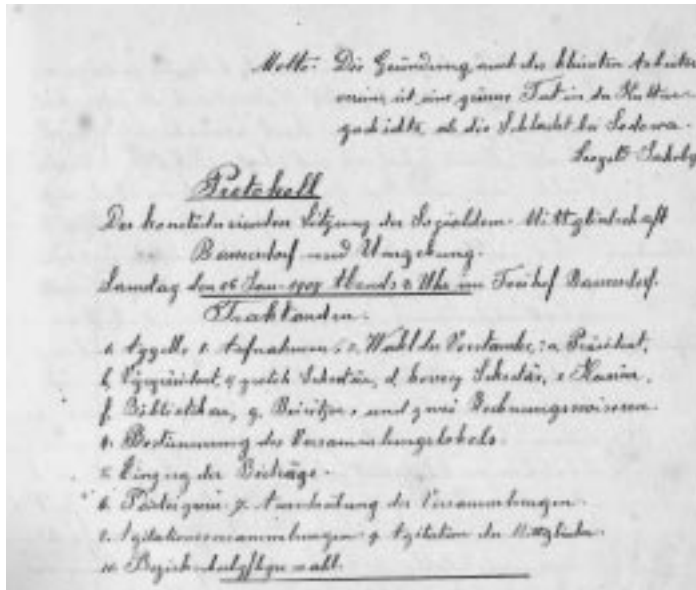 Motto: Die Gründung auch des kleinsten Arbeiter
vereins ist eine grössere Tat in der Kultur-
geschichte als die Schlacht bei Sadowa.
Protokoll
Der konstituierenden Sitzung der Sozialdem. Mittgliedschaft
und Umgebung.
Samstag den 26 Jan. Abends 8 Uhr im Freihof
Traktanden:
1. Appell 2. Aufnahmen, 3. Wahl des Vorstandes: a. Präsident,
b. Vizepräsident, c. Sekretär, d. Sekretär, e. Kassier,
f. Bibliothekar, g. Beisitzer, und zwei Rechnungsrevisoren.
4. Bestimmung des Versammlungslokals.
5. Einzug der Beiträge.
6. 7. der Versammlungen.
8. Agitationsversammlungen 9. Agitation der Mittglieder.
10.